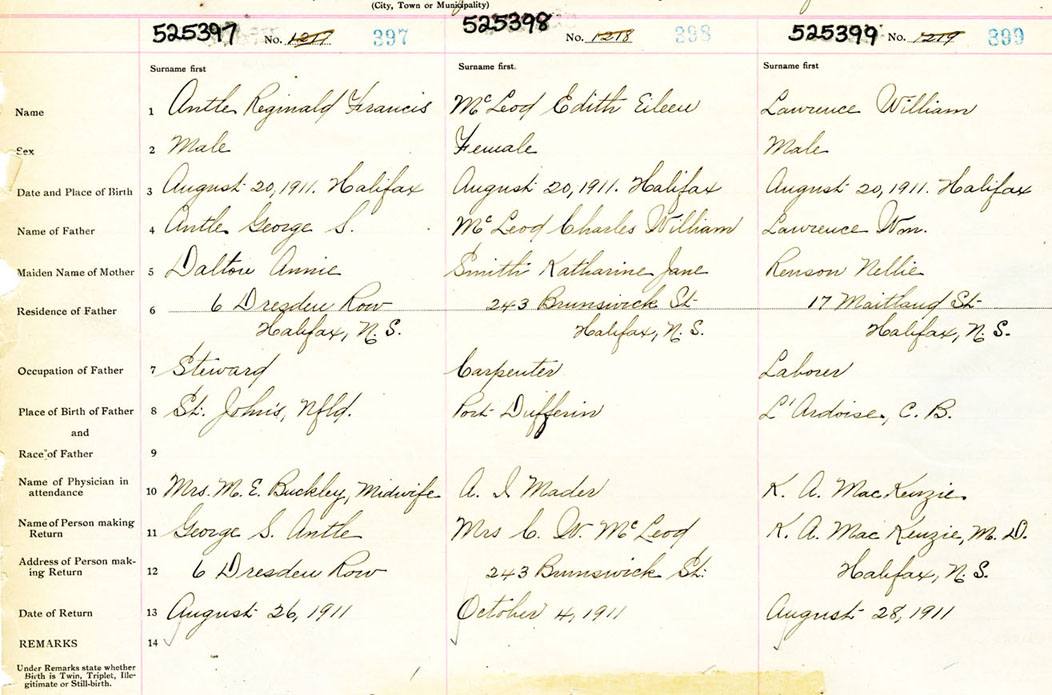 (City, Town or Municipality)
525397 No. 1217 397 525398 No. 1218 398 525399 No. 1219 399
Surname first Surname first. Surname first
Name 1 Antle Reginald Francis McLeod Edith Eileen Lawrence William
Sex 2 Male Female Male
Date and Place of Birth 3 August 20, 1911. Halifax August 20, 1911. Halifax August 20, 1911. Halifax
Name of Father 4 Antle George S. McLeod Charles William Lawrence Wm.
Maiden Name of Mother 5 Dalton Annie Smith Katharine Jane Renson Nellie
Residence of Father 6 6 Dresden Row 243 Brunswick St 17 Maitland St
Halifax, N.S. Halifax, N.S. Halifax, N.S.
Occupation of Father 7 Steward Carpenter Laborer
Place of Birth of Father 8 St. John's, Nfld. Port Dufferin L'Ardoise, C.B.
and
Race of Father 9
Name of Physician in
attendance 10 Mrs. M. E. Buckley, Midwife A. I Mader K. A. MacKenzie
Name of Person making
Return 11 George S. Antle Mrs C. W. McLeod K. A. MacKenzie, M.D.
Address of Person mak-
ing Return 12 6 Dresden Row 243 Brunswick St. Halifax, N.S.
Date of Return 13 August 26, 1911 October 4, 1911 August 28, 1911
REMARKS 14
Under Remarks state whether
Birth is Twin, Triplet, Ille-
gitimate or Still-birth.